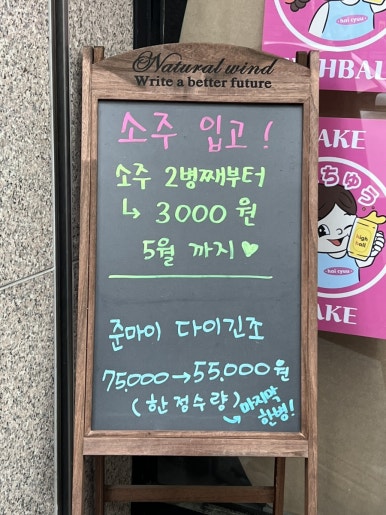 Natural wind
Write a better future
소주 입고!
소주 2병째부터
↳ 3000원
5월 까지♥
준마이 다이긴조
75.000→55.000원
(한정수량)
↳ 마지막
한병!
hai cyuu
HBAL
AKE
ちゅう
high
ball
hai cyuu
AKE